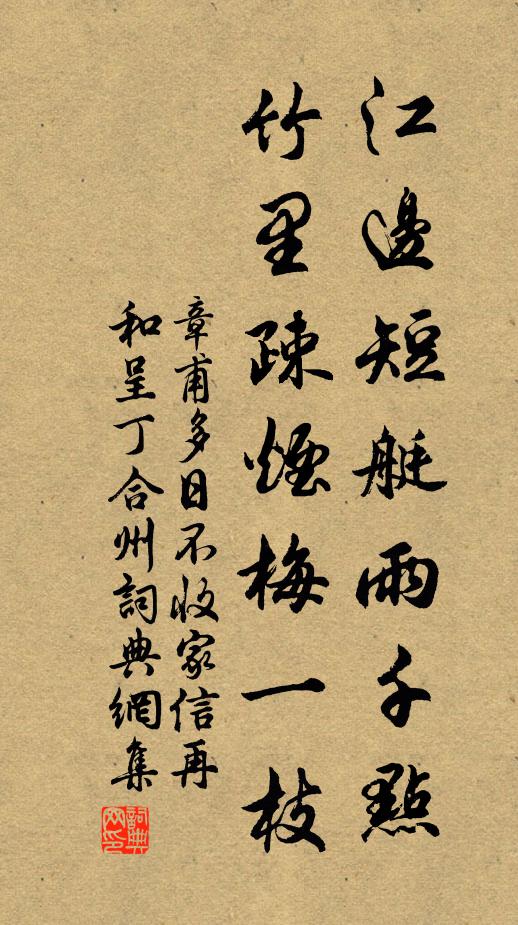 江邊短艇雨千點
竹里疎煙梅一枝
章甫多日不收家信再
和呈丁合州詞典網集
詞典
网印